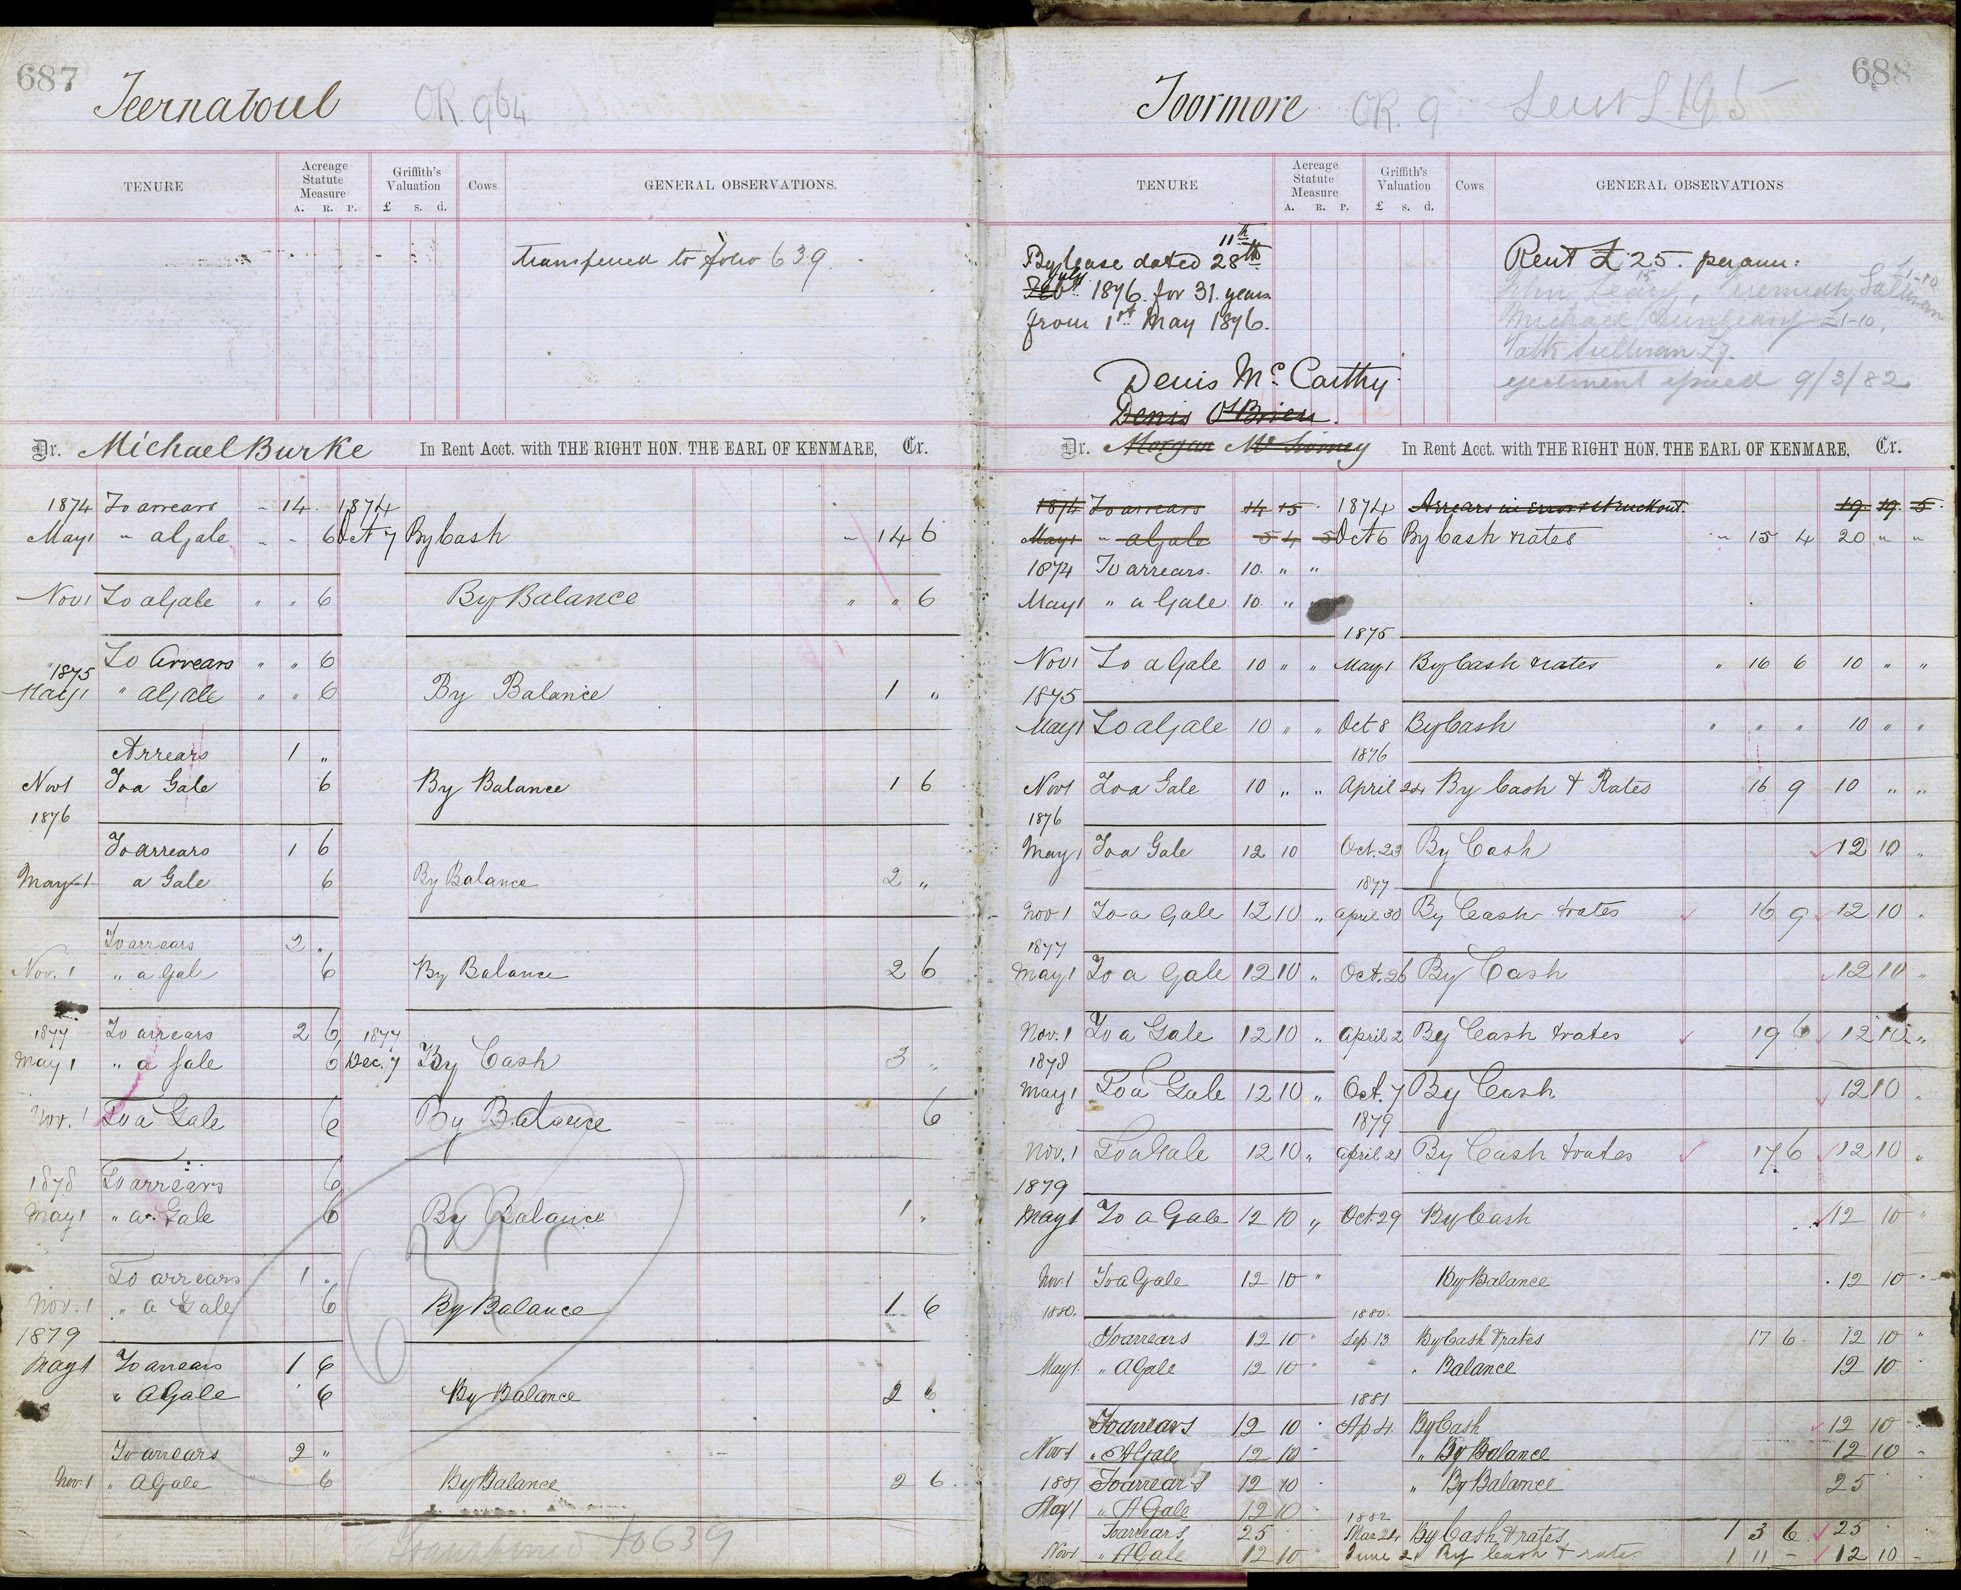 687
Teernaboul OR. 964
TENURE Acreage Statute Measure A. R. P. Griffith's Valuation £ s. d. Cows GENERAL OBSERVATIONS.
transferred to folio 639
Dr. Michael Burke In Rent Acct. with THE RIGHT HON. THE EARL OF KENMARE, Cr.
1874 To arrears - 14 . 1874
May 1 " a Gale - - 6 Oct 7 By Cash - 14 6
Nov 1 To a Gale " " 6 By Balance " " 6
To Arrears " " 6
1875
May 1 " a Gale " " 6 By Balance 1 "
Arrears 1 "
Nov 1 To a Gale 6 By Balance 1 6
1876
To arrears 1 6
May 1 a Gale 6 By Balance 2 "
To arrears 2 .
Nov. 1 " a Gale 6 By Balance 2 6
1877 To arrears 2 6 1877
May 1 " a Gale 6 Dec. 7 By Cash 3 "
Nov. 1 To a Gale 6 By Balance 6
1878 To arrears 6
May 1 " a Gale 6 By Balance 1 "
To arrears 1 "
Nov. 1 " a Gale 6 By Balance 1 6
1879
May 1 To arrears 1 6
" A Gale 6 By Balance 2 "
To arrears 2 "
Nov 1 " A Gale 6 By Balance 2 6
639
Transferred to 639
688
Toormore OR. 9
TENURE Acreage Statute Measure A. R. P. Griffith's Valuation £ s. d. Cows GENERAL OBSERVATIONS
11th
By lease dated 28th Rent £25. per ann:
July
Feby 1876 for 31 years John Leary, Jeremiah Sullivan £1-10
from 1st May 1876. Michael £1-10,
Patk Sullivan £7.
ejectment issued 9/3/82
Denis McCarthy
Denis O'Brien.
Dr. Morgan In Rent Acct. with THE RIGHT HON. THE EARL OF KENMARE, Cr.
1874 To arrears 14 15 1874 Arrears in error struck out. 19 19 5
May 1 " a Gale 5 4 5 Oct 6 By Cash & rates " 15 4 20 " "
1874 To arrears. 10 " "
May 1 " a Gale 10 "
1875
Nov 1 To a Gale 10 " " May 1 By Cash & rates " 16 6 10 " "
1875
May 1 To a Gale 10 " " Oct 8 By Cash " " " 10 " "
1876
Nov 1 To a Gale 10 " " April 24 By Cash & Rates 16 9 10 " "
1876
May 1 To a Gale 12 10 Oct. 23 By Cash 12 10 "
1877
Nov. 1 To a Gale 12 10 " April 30 By Cash & rates 16 9 12 10 .
1877
May 1 To a Gale 12 10 " Oct. 26 By Cash 12 10 "
Nov. 1 To a Gale 12 10 " April 2 By Cash & rates 19 6 12 10 "
1878
May 1 To a Gale 12 10 " Oct. 7 By Cash 12 10 .
1879
Nov. 1 To a Gale 12 10 " April 21 By Cash & rates 17 6 12 10 "
1879
May 1 To a Gale 12 10 " Oct. 29 By Cash 12 10 "
Nov. 1 To a Gale 12 10 " By Balance 12 10 "
1880. 1880.
To arrears 12 10 " Sep 13 By Cash & rates 17 6 12 10 "
May 1 " A Gale 12 10 " " Balance 12 10
1881
To arrears 12 10 . Ap 4 By Cash 12 10
Nov 1 " A Gale 12 10 " By Balance 12 10 -
1881 To arrears 12 10 " By Balance 25
May 1 " A Gale 12 10 1882
To arrears 25 Mar 24 By Cash & rates 1 3 6 25
Nov 1 " A Gale 12 10 June 21 By Cash & rates 1 11 - 12 10 -